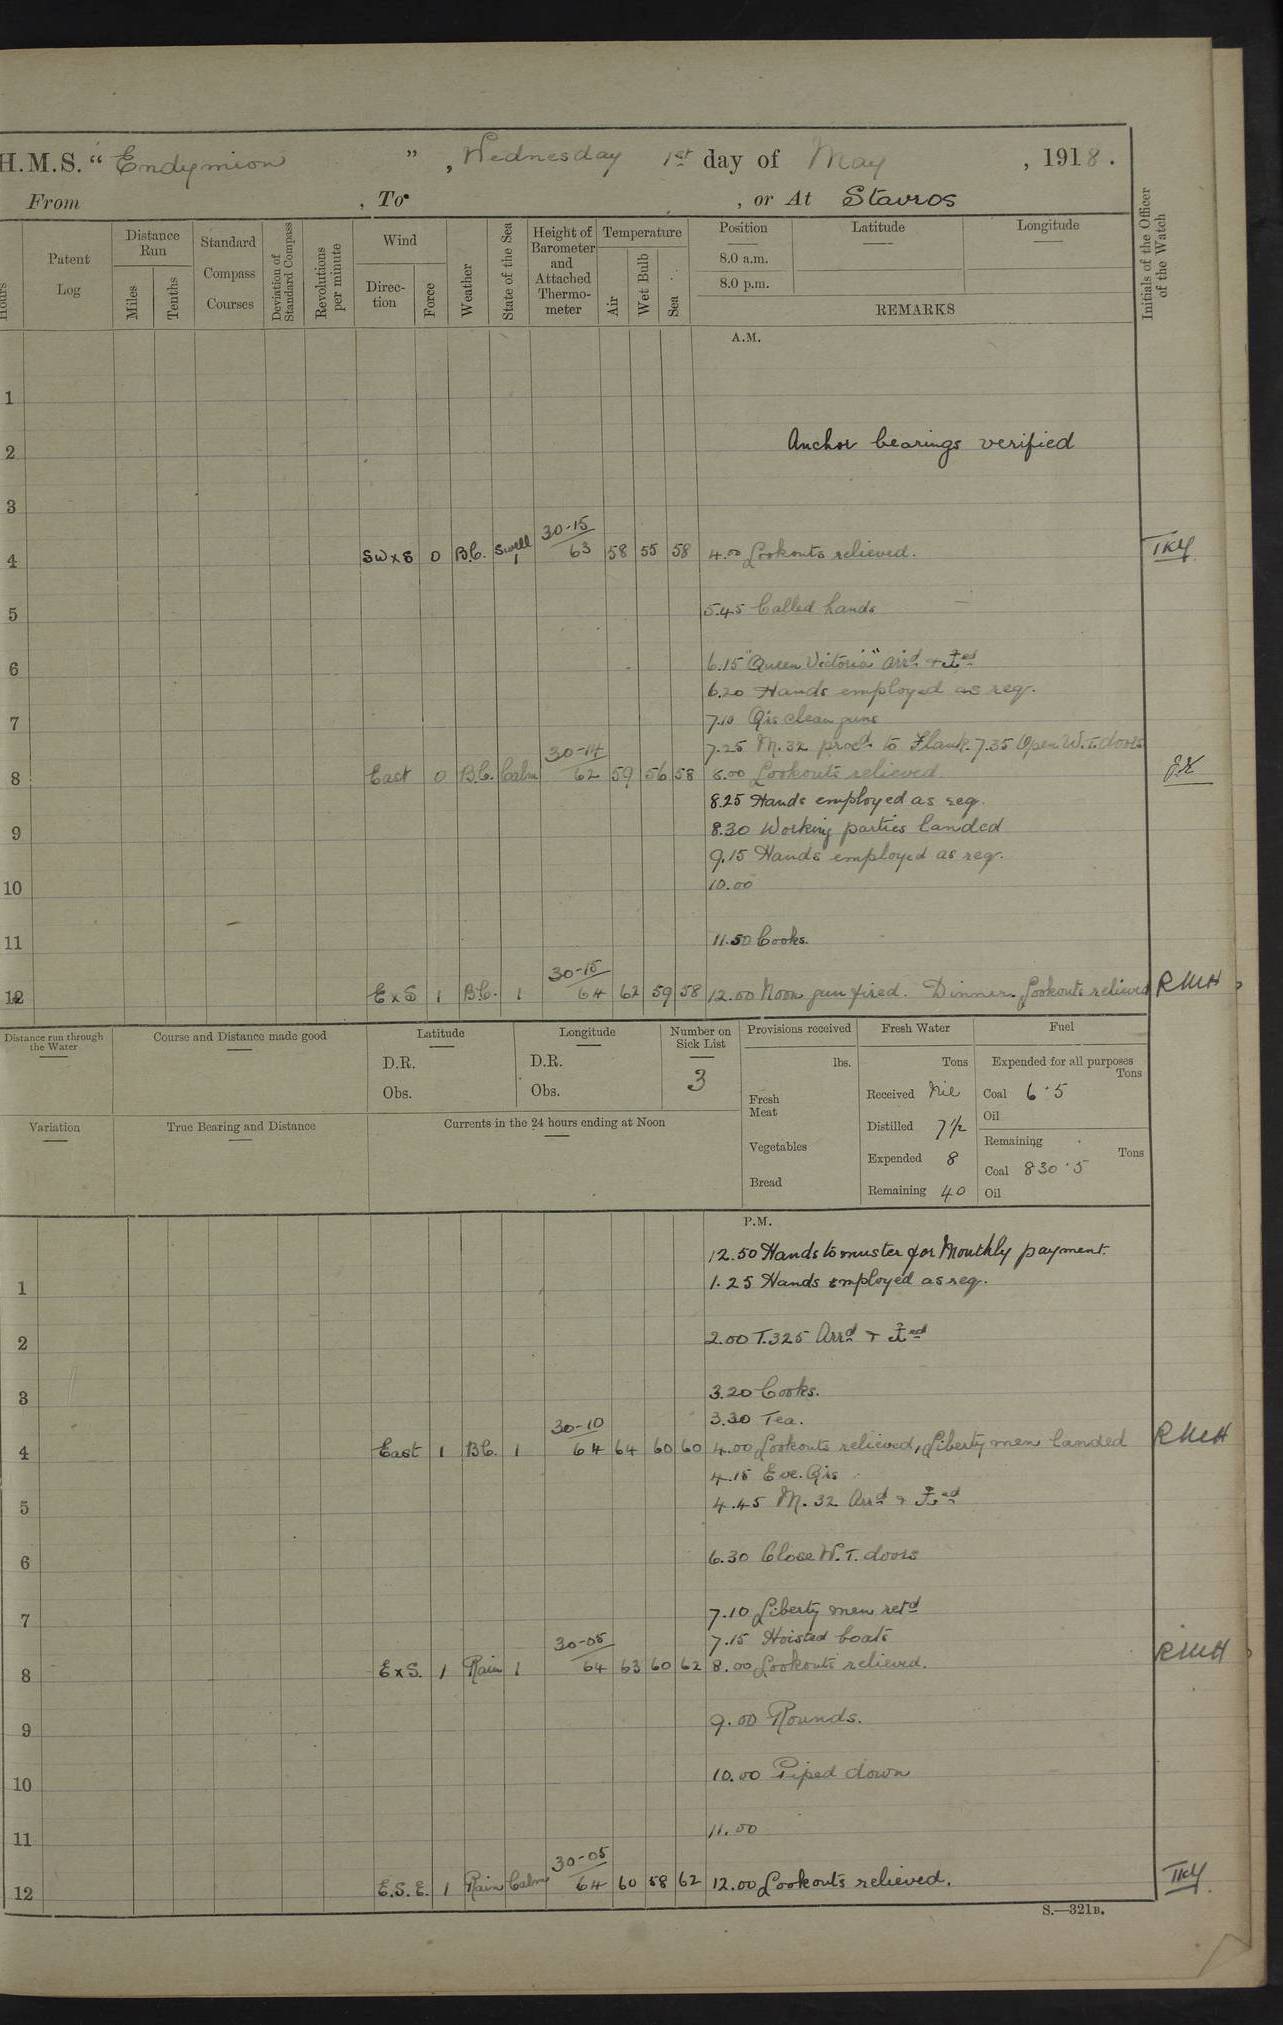 H.M.S. “ Endymion ” , Wednesday 1st day of May , 1918 .
From , To , or At Stavros
Hours
Patent Log
Distance Run
Miles
Tenths
Standard Compass Courses
Deviation of Standard Compass
Revolutions per minute
Wind
Direction
Force
Weather
State of the Sea
Height of Barometer and Attached Thermometer
Temperature
Air
Wet Bulb
Sea
Position
8.0 a.m.
8.0 p.m.
Latitude
Longitude
REMARKS
Initials of the Officer of the Watch
A.M.
1
2 Anchor bearings verified
3
30-15
4 SWxS 0 B.C. Swell 1 63 58 55 58 4.00 Lookouts relieved. TKY
5 5.45 Called hands
6 6.15 "Queen Victoria" arrd +
6.20 Hands employed as req.
7 7.10 Qrs clean guns
30-14 7.25 M. 32 procd to Flank. 7.35 Open W.T. doors
8 East 0 B.C. Calm 62 59 56 58 8.00 Lookouts relieved
8.25 Hands employed as req.
9 8.30 Working parties landed
9.15 Hands employed as req.
10 10.00
11 11.50 Cooks.
30-15
12 ExS 1 B.C. 1 64 62 59 58 12.00 Noon gun fired. Dinner. Lookouts relieved RMH
Distance run through the Water
Course and Distance made good
Latitude
D.R.
Obs.
Longitude
D.R.
Obs.
Number on Sick List
3
Provisions received
lbs.
Fresh Meat
Vegetables
Bread
Fresh Water
Tons
Received Nil
Distilled 7½
Expended 8
Remaining 40
Fuel
Expended for all purposes
Tons
Coal 6·5
Oil
Remaining
Tons
Coal 830·5
Oil
Variation
True Bearing and Distance
Currents in the 24 hours ending at Noon
P.M.
12.50 Hands to muster for Monthly payment.
1 1.25 Hands employed as req.
2 2.00 T.325 Arrd +
3 3.20 Cooks.
30-10 3.30 Tea.
4 East 1 B.C. 1 64 64 60 60 4.00 Lookouts relieved, Liberty men landed RMH
4.15 Eve. Qrs
5 4.45 M. 32 Arrd +
6 6.30 Close W.T. doors
7 7.10 Liberty men retd
30-05 7.15 Hoisted boats
8 ExS. 1 Rain 1 64 63 60 62 8.00 Lookouts relieved. RMH
9 9.00 Rounds.
10 10.00 Piped down
11 11.00
30-05
12 E.S.E. 1 Rain Calm 64 60 58 62 12.00 Lookouts relieved. TKY
S.—321B.